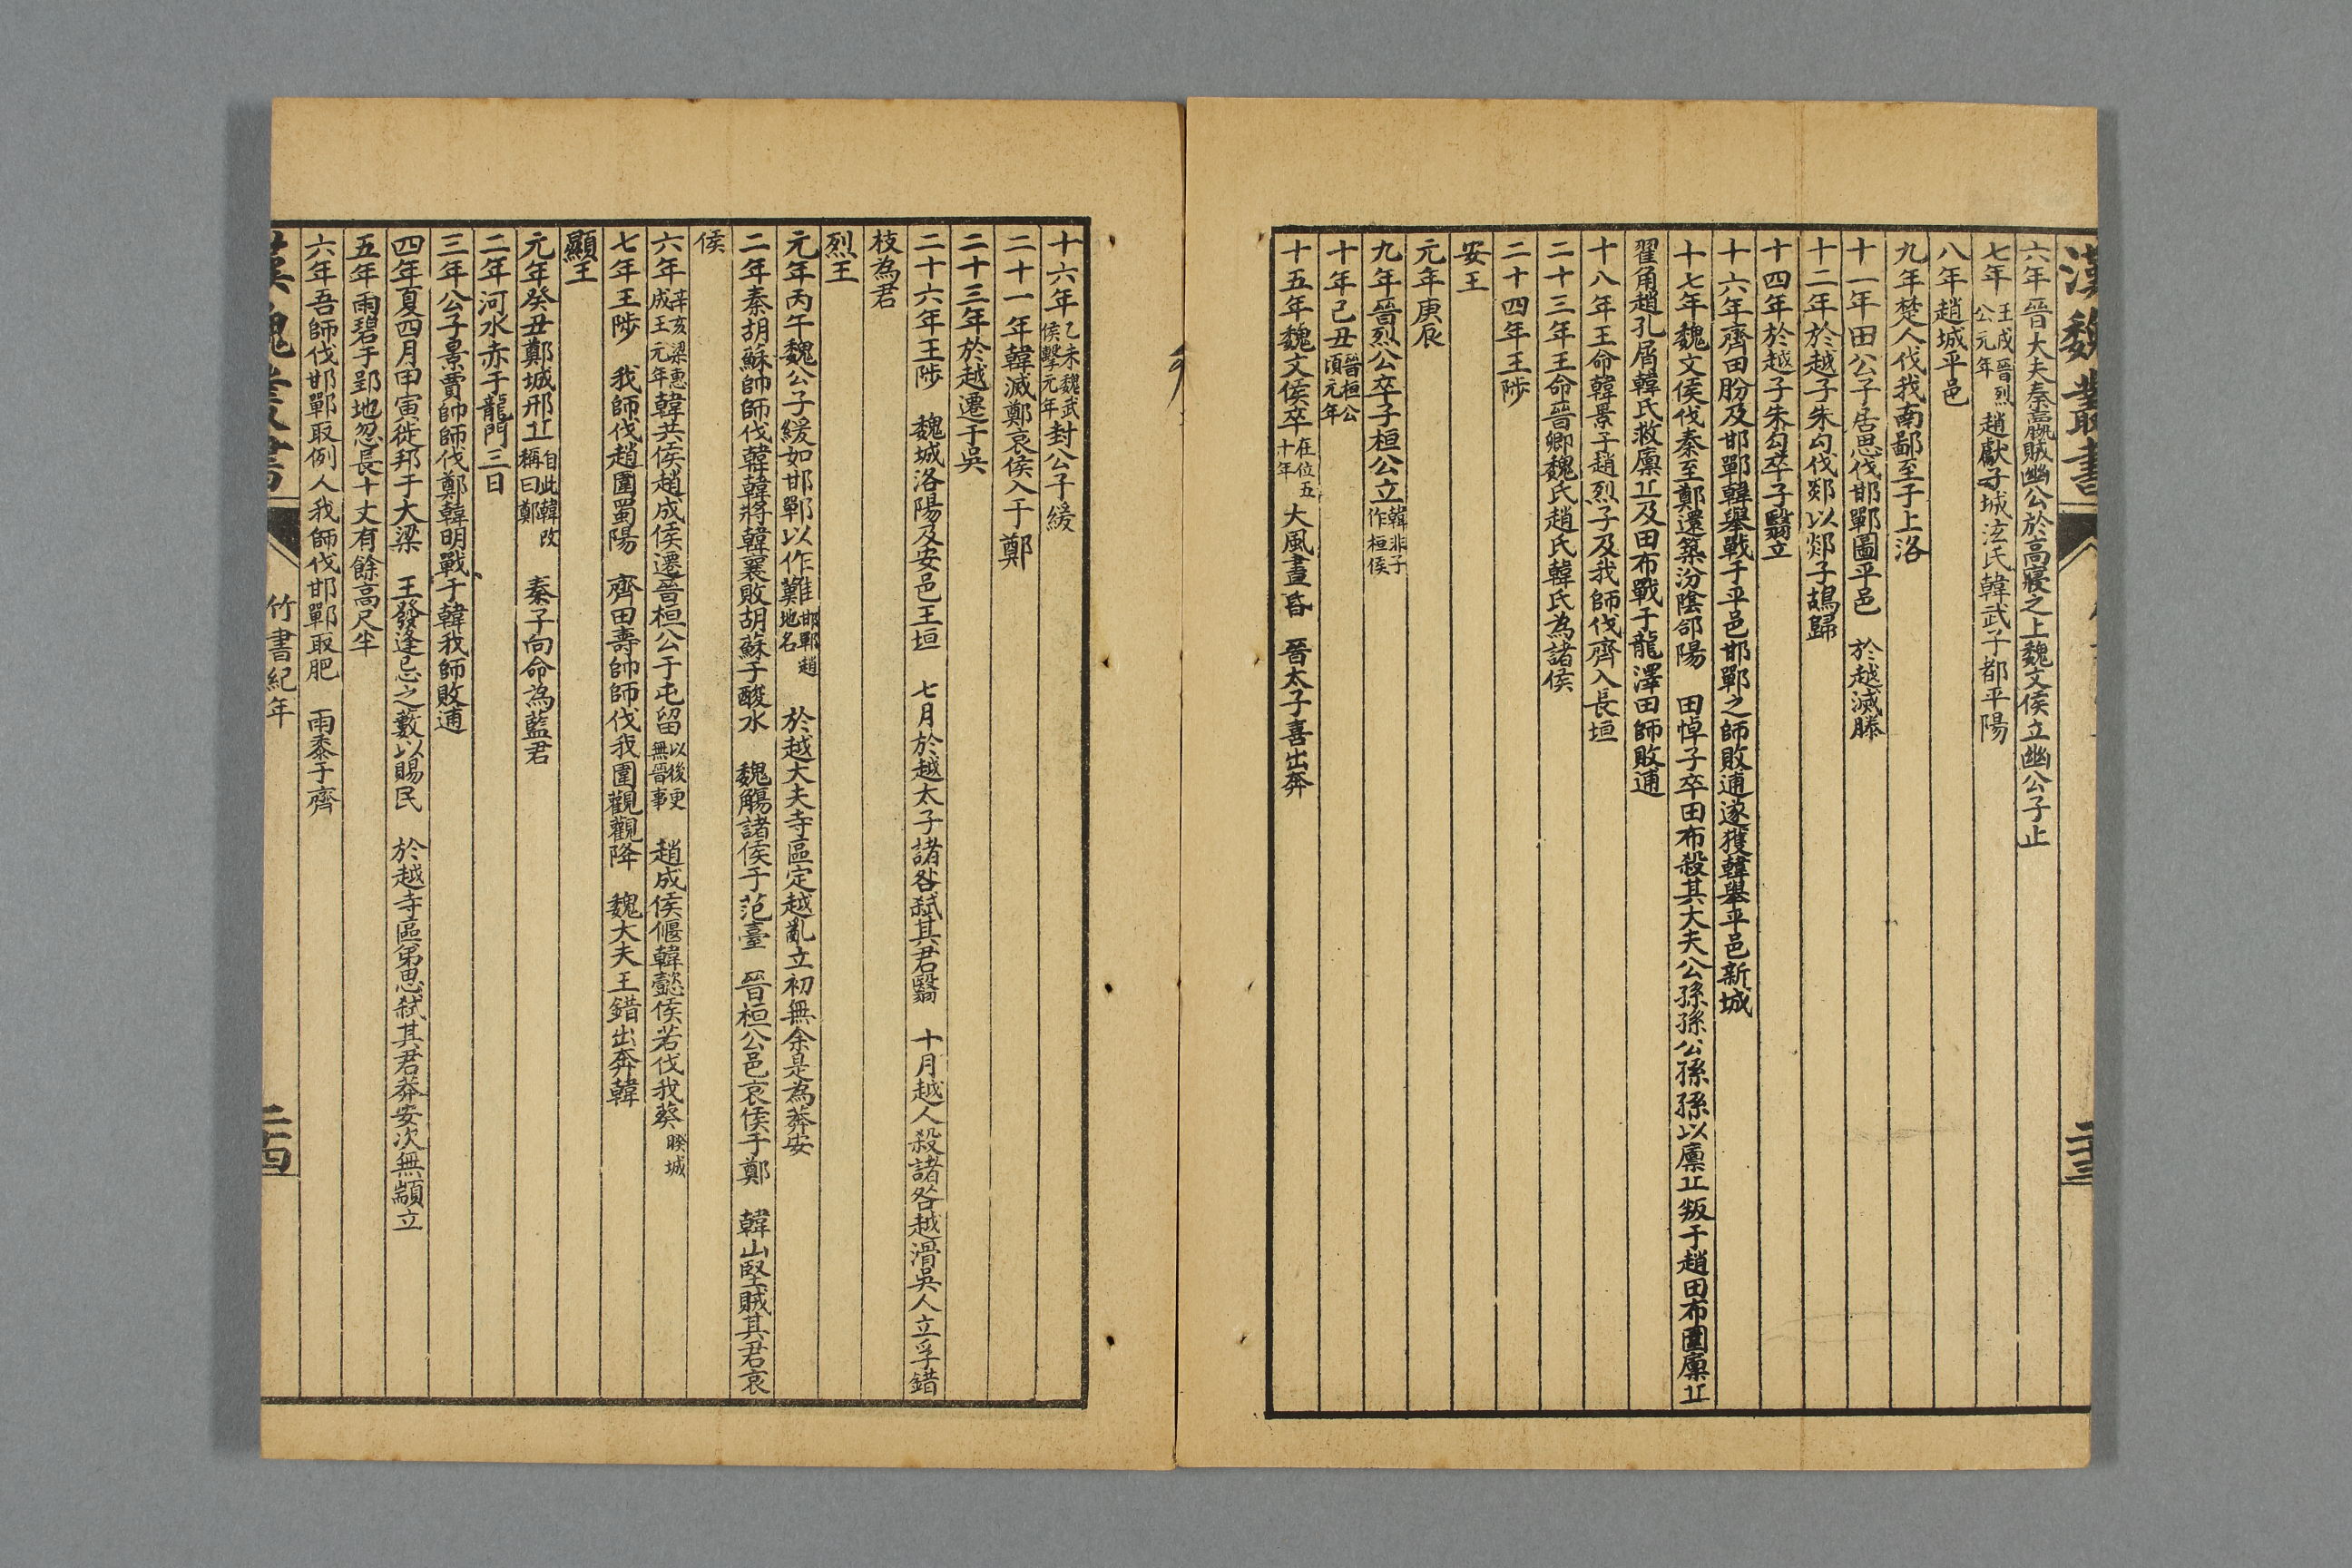 漢魏叢書
二十三
六年晉大夫秦嬴賊幽公於高寢之上魏文侯立幽公子止
七年王戌晉烈公元年趙獻子城泫氏韓武子都平陽
八年趙城平邑
九年楚人伐我南鄙至于上洛
十一年田公子居思伐邯鄲圍平邑 於越滅滕
十二年於越子朱勾伐郯以郯子鴣歸
十四年於越子朱勾卒子翳立
十六年齊田肦及邯鄲韓舉戰于平邑邯鄲之師敗逋遂獲韓舉平邑新城
十七年魏文侯伐秦至鄭還築汾陰郃陽 田悼子卒田布殺其大夫公孫孫公孫孫以廩丘叛于趙田布圍廩丘
翟角趙孔屑韓氏救廩丘及田布戰于龍澤田師敗逋
十八年王命韓景子趙烈子及我師伐齊入長垣
二十三年王命晉卿魏氏趙氏韓氏為諸侯
二十四年王陟
安王
元年庚辰
九年晉烈公卒子桓公立韓非子作桓侯
十年己丑晉桓公頃元年
十五年魏文侯卒在位五十年大風晝昏 晉太子喜出奔
十六年乙未魏武侯擊元年封公子緩
二十一年韓滅鄭哀侯入于鄭
二十三年於越遷于吳
二十六年王陟 魏城洛陽及安邑王垣 七月於越太子諸咎弒其君翳 十月越人殺諸咎越滑吳人立孚錯
枝為君
烈王
元年丙午魏公子緩如邯鄲以作難邯鄲趙地名 於越大夫寺區定越亂立初無余是為莽安
二年秦胡蘇帥師伐韓韓將韓襄敗胡蘇于酸水 魏觴諸侯于范臺 晉桓公邑哀侯于鄭 韓山堅賊其君哀
侯
六年辛亥梁惠成王元年韓共侯趙成侯遷晉桓公于屯留以後更無晉事 趙成侯偃韓懿侯若伐我葵睽城
七年王陟 我師伐趙圍蜀陽 齊田壽帥師伐我圍觀觀降 魏大夫王錯出奔韓
顯王
元年癸丑鄭城邢丘自此韓改稱曰鄭 秦子向命為藍君
二年河水赤于龍門三日
三年公子景賈帥師伐鄭韓明戰于韓我師敗逋
四年夏四月甲寅徙邦于大梁 王發逢忌之藪以賜民 於越寺區弟思弒其君莽安次無顓立
五年雨碧于郢地忽長十丈有餘高尺半
六年吾師伐邯鄲取例人我師伐邯鄲取肥 雨黍于齊
漢魏叢書
竹書紀年
二十四